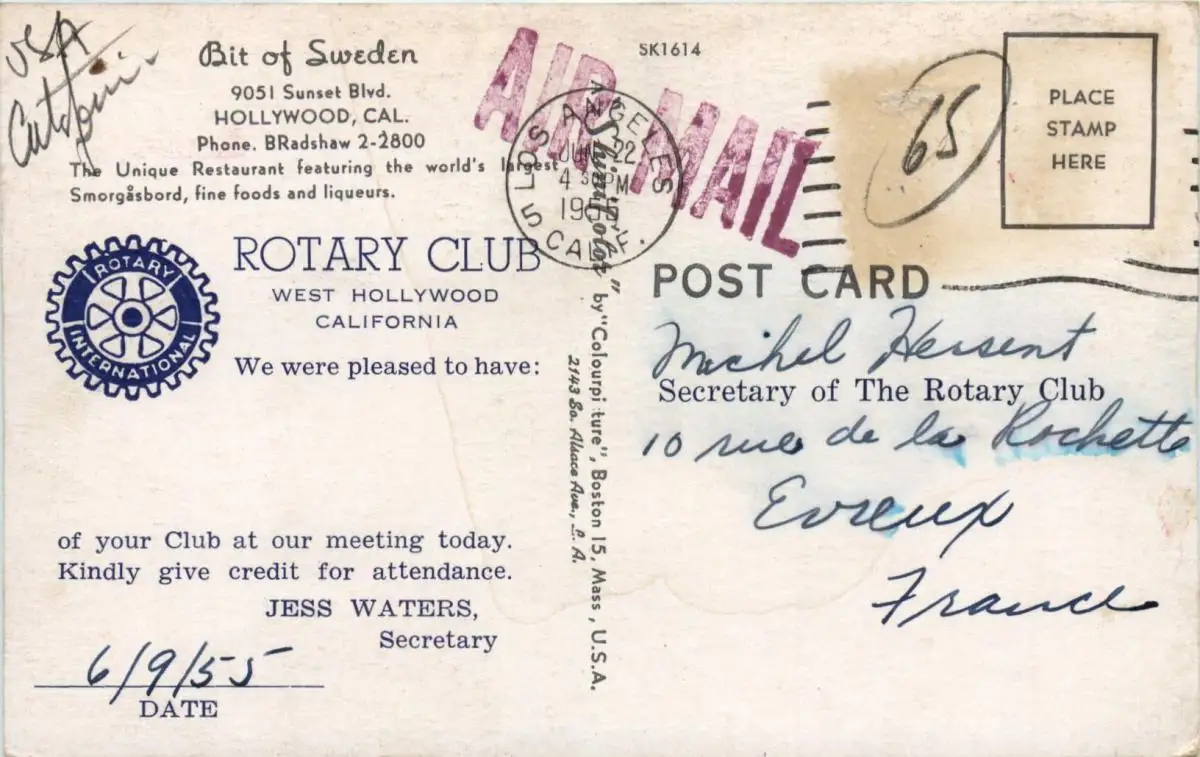 USA
Bit of Sweden
9051 Sunset Blvd.
HOLLYWOOD, CAL.
Phone. BRadshaw 2-2800
The Unique Restaurant featuring the world's largest
Smorgåsbord, fine foods and liqueurs.
ROTARY
INTERNATIONAL
ROTARY CLUB
WEST HOLLYWOOD
CALIFORNIA
We were pleased to have:
of your Club at our meeting today.
Kindly give credit for attendance.
JESS WATERS,
Secretary
6/9/55
DATE
SK1614
AIR MAIL
LOS ANGELES
5 CALIF.
JUN 22
4 30 PM
1955
by "Colourpicture", Boston 15, Mass., U.S.A.
2143 So. Alsace Ave., L. A.
65
PLACE
STAMP
HERE
POST CARD
Michel Hersent
Secretary of The Rotary Club
10 rue de la Rochette
Evreux
France